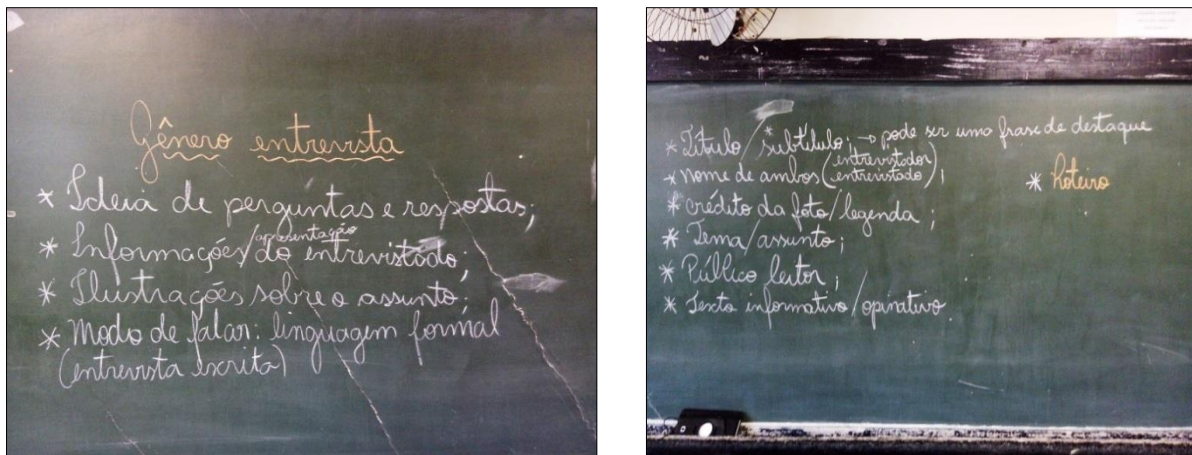 Gênero entrevista
* Ideia de perguntas e respostas;
* Informações/apresentação do entrevistado;
* Ilustrações sobre o assunto;
* Modo de falar: linguagem formal
(entrevista escrita)
* Título/*subtítulo; → pode ser uma frase de destaque
* nome de ambos (entrevistador entrevistado);
* crédito da foto/legenda;
* Tema/assunto;
* Público leitor;
* Texto informativo/opinativo.
* Roteiro